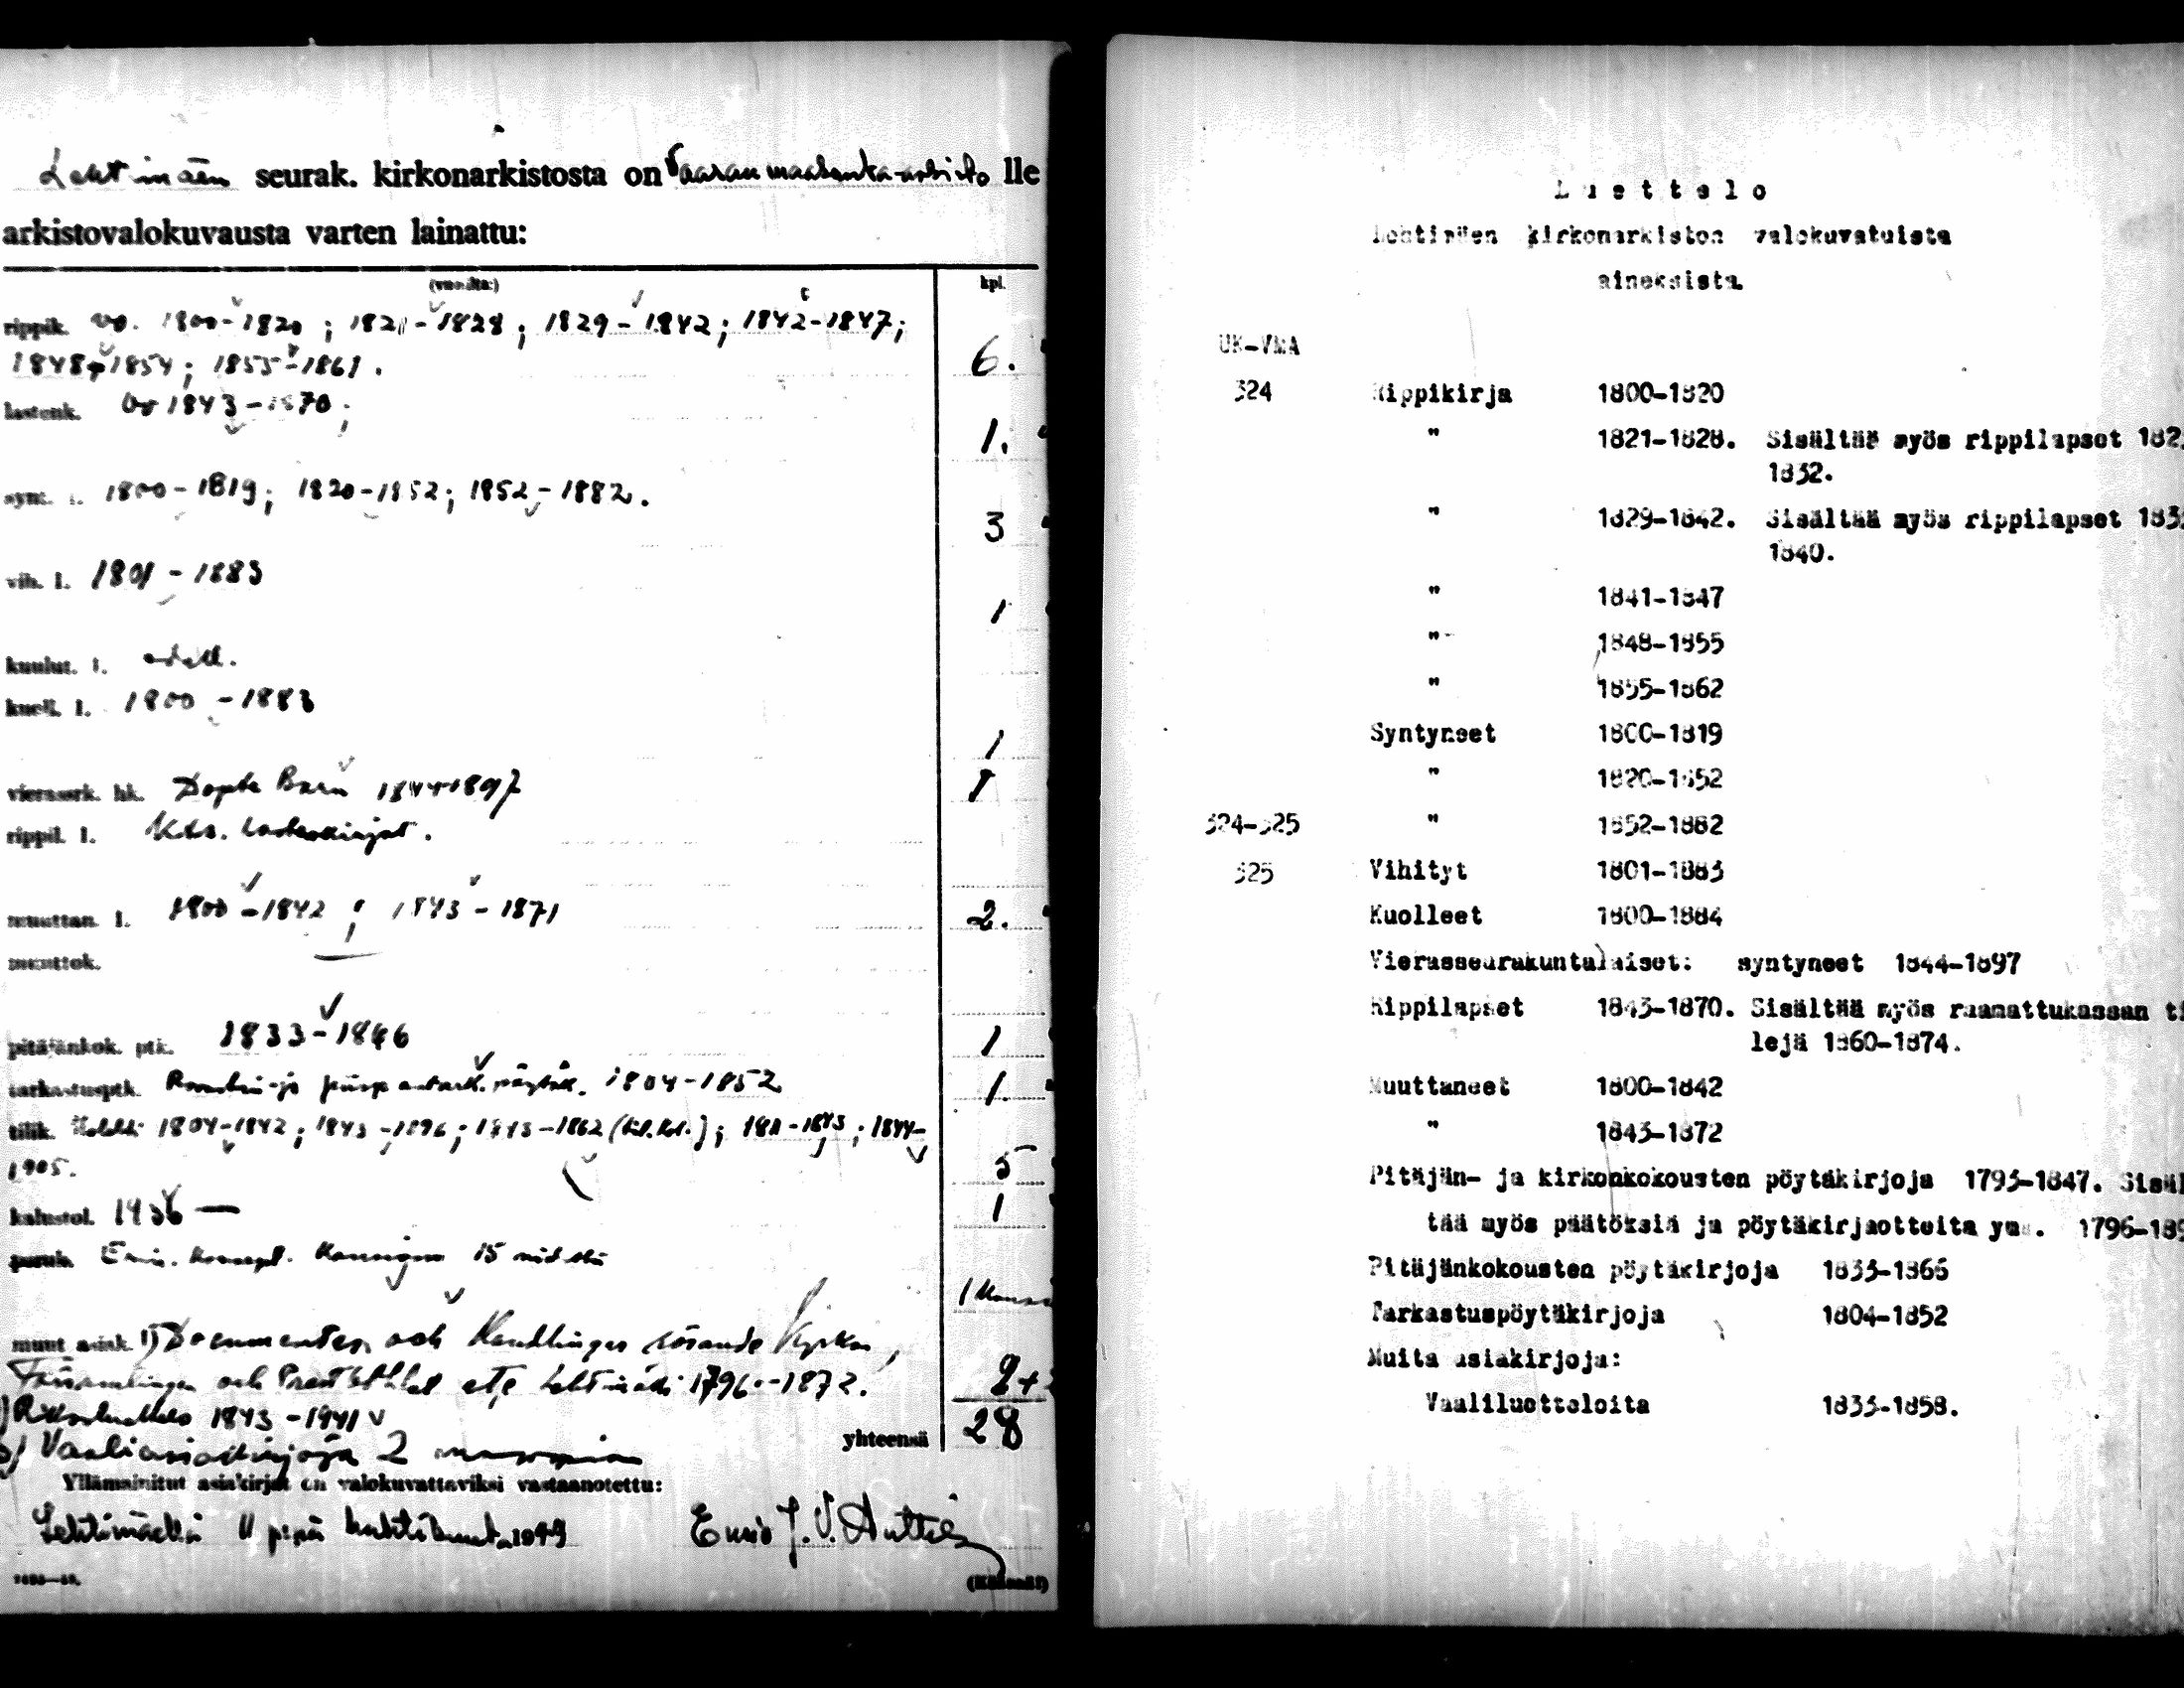 Lehtimäen seurak. kirkonarkistosta on Vaasan maakunta-arkisto lle
arkistovalokuvausta varten lainattu:
(vuosilta:) kpl.
rippik. vv. 1800-1820; 1821-1828; 1829-1842; 1842-1847;
1848-1854; 1855-1861. 6.
lastenk. vv 1843-1870; 1.
synt. l. 1800-1819; 1820-1852; 1852-1882. 3
vih. l. 1801-1883 1
kuulut. l.
kuoll. l. 1800-1883 1
vierassrk. hk. Döpta Barn 1844-1897 1
rippil. l. Kts. lastenkirjat.
muuttan. l. 1800-1842; 1843-1871 2.
muuttok.
pitäjänkok. ptk. 1833-1846 1
tarkastusptk. 1804-1852 1.
tilik. 1804-1842; 1843-1896; 1843-1862; 1811-1843; 1844-
1905. 5
kalustol. 1936 — 1
15
muut asiak. 1) Documenter och Handlingar rörande Kyrkan,
Församlingen och Lehtimäki 1796-1872. 2+
1843-1941
Vaaliasiakirjoja 2 yhteensä 28
Yllämainitut asiakirjat on valokuvattaviksi vastaanotettu:
Lehtimäellä p:nä huhtikuuta 1949 J. V.
Luettelo
Lehtimäen kirkonarkiston valokuvatuista
aineksista.
UK-VMA
324 Rippikirja 1800-1820
" 1821-1828. Sisältää myös rippilapset 182
1832.
" 1829-1842. Sisältää myös rippilapset 183
1840.
" 1841-1847
" 1848-1855
" 1855-1862
Syntyneet 1800-1819
" 1820-1852
324-325 " 1852-1882
325 Vihityt 1801-1883
Kuolleet 1800-1884
Vierasseurakuntalaiset: syntyneet 1844-1897
Rippilapset 1843-1870. Sisältää myös raamattukassan ti
lejä 1860-1874.
Muuttaneet 1800-1842
" 1843-1872
Pitäjän- ja kirkonkokousten pöytäkirjoja 1793-1847. Sisäl
tää myös päätöksiä ja pöytäkirjaotteita ym. 1796-18
Pitäjänkokousten pöytäkirjoja 1833-1866
Tarkastuspöytäkirjoja 1804-1852
Muita asiakirjoja:
Vaaliluetteloita 1833-1858.